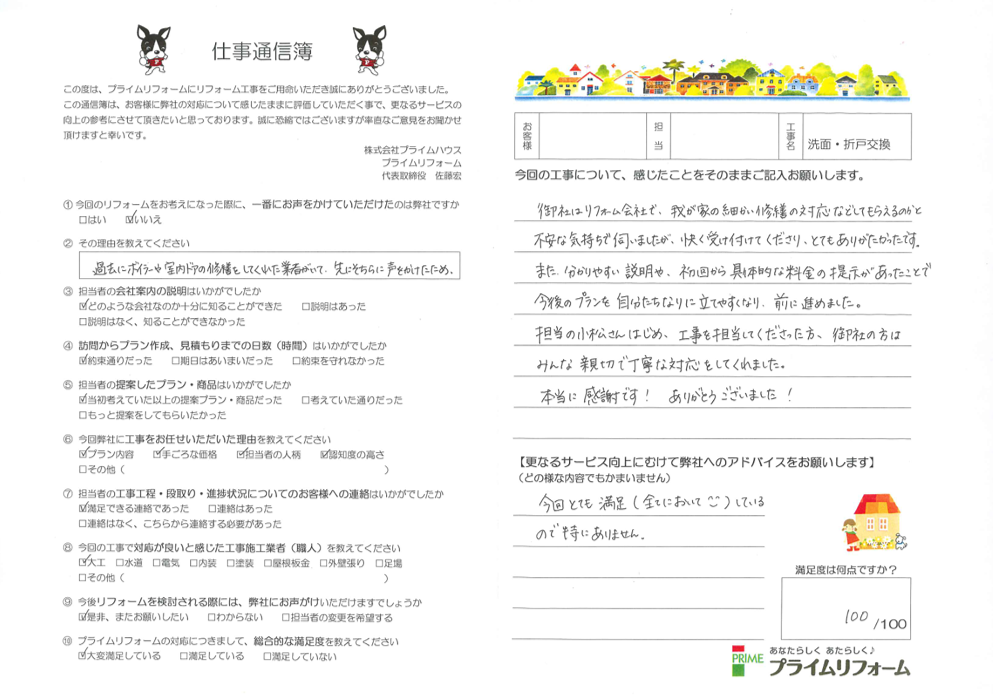 仕事通信簿
この度は、プライムリフォームにリフォーム工事をご用命いただき誠にありがとうございました。
この通信簿は、お客様に弊社の対応について感じたままに評価していただく事で、更なるサービスの
向上の参考にさせて頂きたいと思っております。誠に恐縮ではございますが率直なご意見をお聞かせ
頂けますと幸いです。
株式会社プライムハウス
プライムリフォーム
代表取締役 佐藤宏
① 今回のリフォームをお考えになった際に、一番にお声をかけていただけたのは弊社ですか
□はい ☑いいえ
② その理由を教えてください
過去にボイラーや室内ドアの修繕をしてくれた業者がいて、先にそちらに声をかけたため。
③ 担当者の会社案内の説明はいかがでしたか
☑どのような会社なのか十分に知ることができた □説明はあった
□説明はなく、知ることができなかった
④ 訪問からプラン作成、見積もりまでの日数（時間）はいかがでしたか
☑約束通りだった □期日はあいまいだった □約束を守れなかった
⑤ 担当者の提案したプラン・商品はいかがでしたか
☑当初考えていた以上の提案プラン・商品だった □考えていた通りだった
□もっと提案をしてもらいたかった
⑥ 今回弊社に工事をお任せいただいた理由を教えてください
☑プラン内容 ☑手ごろな価格 ☑担当者の人柄 ☑認知度の高さ
□その他（ ）
⑦ 担当者の工事工程・段取り・進捗状況についてのお客様への連絡はいかがでしたか
☑満足できる連絡であった □連絡はあった
□連絡はなく、こちらから連絡する必要があった
⑧ 今回の工事で対応が良いと感じた工事施工業者（職人）を教えてください
☑大工 □水道 □電気 □内装 □塗装 □屋根板金 □外壁張り □足場
□その他（ ）
⑨ 今後リフォームを検討される際には、弊社にお声がけいただけますでしょうか
☑是非、またお願いしたい □わからない □担当者の変更を希望する
⑩ プライムリフォームの対応につきまして、総合的な満足度を教えてください
☑大変満足している □満足している □満足していない
お客様 担当 工事名 洗面・折戸交換
今回の工事について、感じたことをそのままご記入お願いします。
御社はリフォーム会社で、我が家の細かい修繕の対応などしてもらえるのかと
不安な気持ちで伺いましたが、快く受け付けてくださり、とてもありがたかったです。
また、分かりやすい説明や、初回から具体的な料金の提示があったことで
今後のプランを自分たちなりに立てやすくなり、前に進めました。
担当の小松さんはじめ、工事を担当してくださった方、御社の方は
みんな親切で丁寧な対応をしてくれました。
本当に感謝です！ ありがとうございました！
【更なるサービス向上にむけて弊社へのアドバイスをお願いします】
（どの様な内容でもかまいません）
今回とても満足（全てにおいて）している
ので特にありません。
満足度は何点ですか？
100 /100
PRIME あなたらしく あたらしく♪
プライムリフォーム